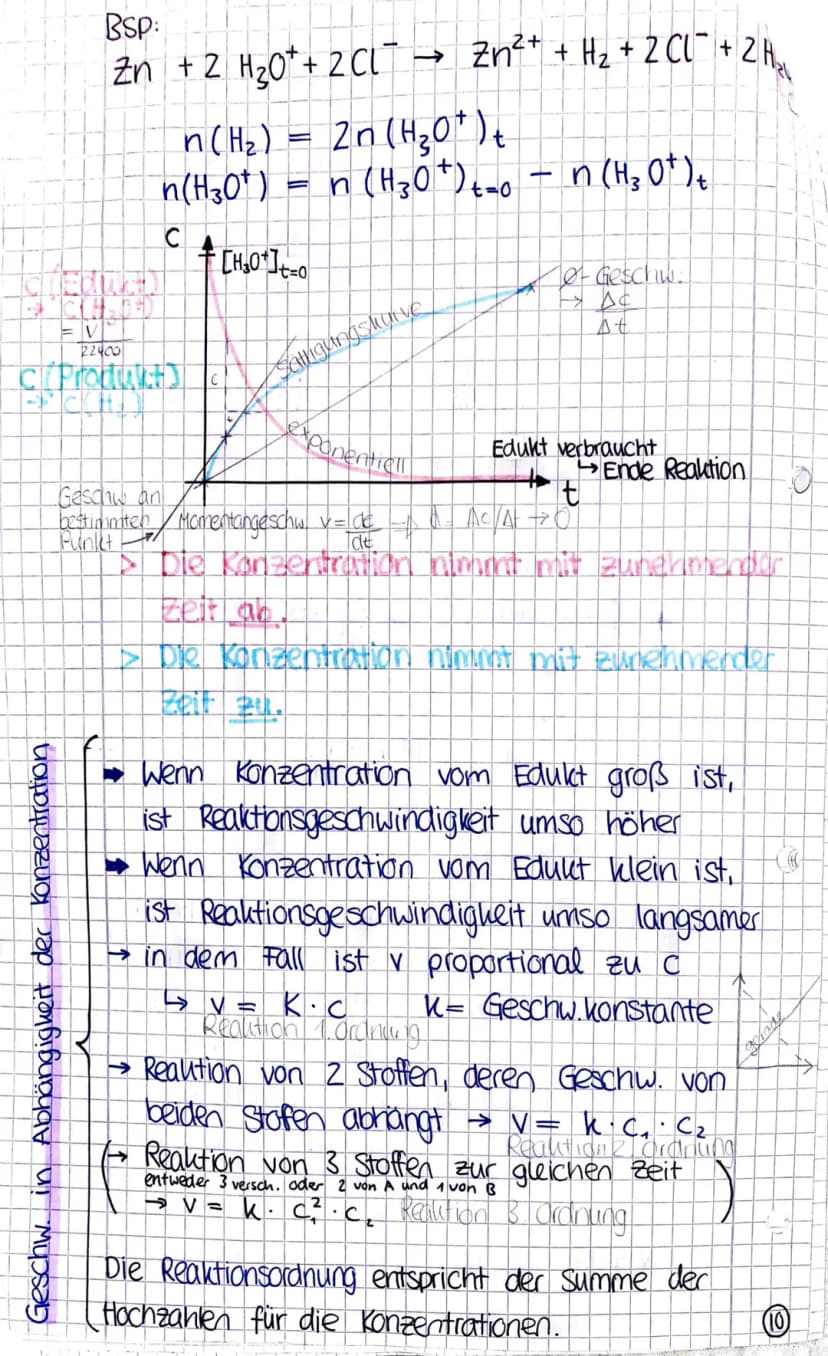 BSP:
Zn + 2 H₃O⁺ + 2 Cl⁻ → Zn²⁺ + H₂ + 2 Cl⁻ + 2 H₂O
n(H₂) = 2n(H₃O⁺)t
n(H₃O⁺) = n(H₃O⁺)t=0 − n(H₃O⁺)t
C
[H₃O⁺]t=0
C(Edukt)
→ C(H₃O⁺)
= V
22400
C(Produkt)
→ C(H₂)
C
Sättigungskurve
exponentiell
Ø-Geschw.
→ Δc
Δt
Edukt verbraucht
↳ Ende Reaktion
t
Geschw an
bestimmten
Punkt
Momentangeschw. v = dc
dt
d = Δc/Δt → 0
> Die Konzentration nimmt mit zunehmender
Zeit ab.
> Die Konzentration nimmt mit zunehmender
Zeit zu.
Geschw. in Abhängigkeit der Konzentration
➡ Wenn Konzentration vom Edukt groß ist,
ist Reaktionsgeschwindigkeit umso höher
➡ Wenn Konzentration vom Edukt klein ist,
ist Reaktionsgeschwindigkeit umso langsamer
→ in dem Fall ist v proportional zu c
↳ v = K · c K = Geschw.konstante
Reaktion 1. Ordnung
gerade
→ Reaktion von 2 Stoffen, deren Geschw. von
beiden Stofen abhängt → v = k · c₁ · c₂
Reaktion 2. Ordnung
(→ Reaktion von 3 Stoffen zur gleichen Zeit
entweder 3 versch. oder 2 von A und 1 von B
→ v = k · c₁² · c₂ Reaktion 3. Ordnung)
Die Reaktionsordnung entspricht der Summe der
Hochzahlen für die Konzentrationen.
10